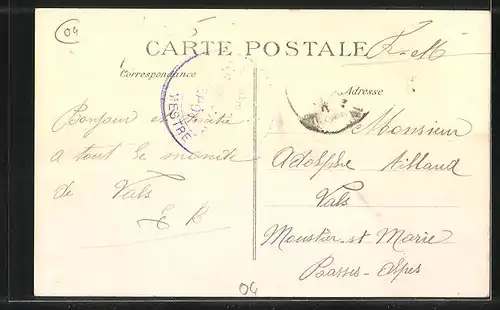 04
CARTE POSTALE
F. M.
Correspondance
Adresse
MESTRE
Bonjour et amitié
a tout le monde
de Vals
E B
Monsieur
Adolphe Aillaud
Vals
Moustier st Marie
Basses-Alpes
04